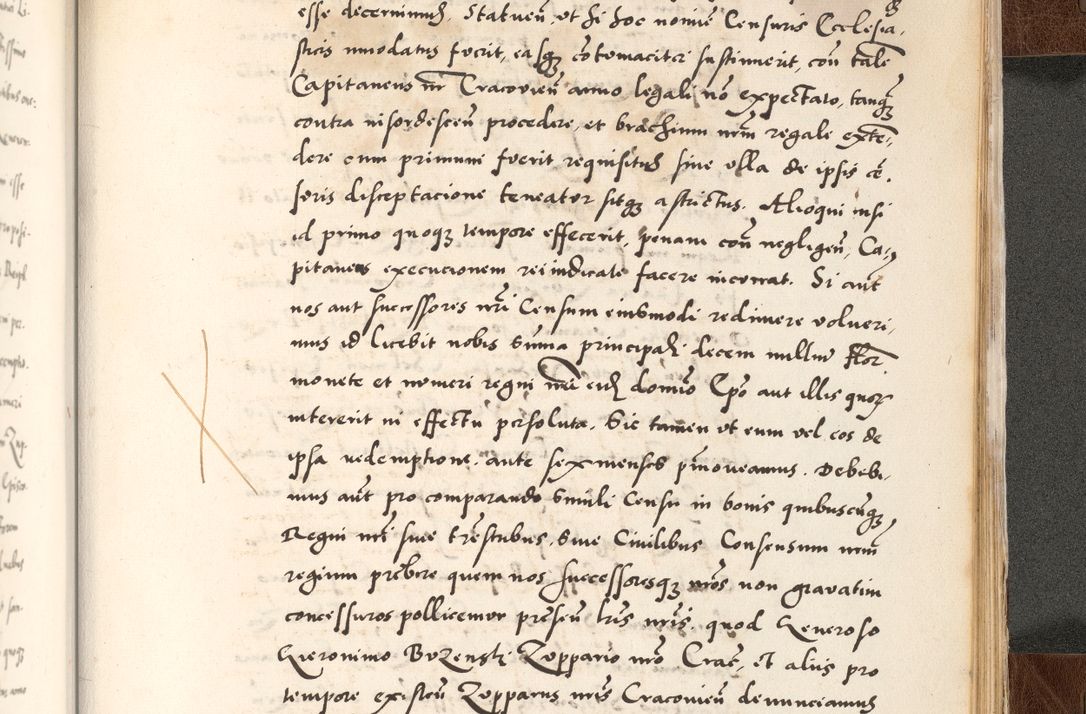 esse decernimus. Statuen̄ ut si hoc nomie Censuris Ecclesia,
sticis innodatus fuerit, easq, cōtomaciter sustinuerit, con talē
Capitaneus nr̄ Cracovien̄ anno legali nō expectato, tanq̄
contra insordescen̄ procedere, et brachium nrm̄ regale exte,
dere cum primum fuerit requisitus sine ulla de ipsis cē,
suris disceptacione teneatur sitq, astrictus. Alioqui nisi
id primo quoq, tempore effecerit, penam con negligen̄, Ca,
pitaneus execucionem rei iudicate facere incurrat. Si aut
nos aut successores nri Censum eiusmodi redimere volueri,
mus id licebit nobis Suma principali decem millium flor.
monete et numeri regni nri eid domio Epo aut illis quor
intererit in effectu persoluta. Sic tamen ut eum vel eos de
ipsa redemptione ante sex menses pmoveamus. Debebi,
mus aut pro comparando simili Censu in bonis quibuscuq,
Regni nri sive trestribus, sive Civilibus Consensum nrm
regium prebere quem nos successoresq, nros non gravatim
concessuros pollicemur presen̄ lris nris. quod Generoso
Hieronimo Buzenski Zuppario nro Crac̄, et aliis pro
tempore existen̄ Zuppariis nris Cracovien̄ denunciamus